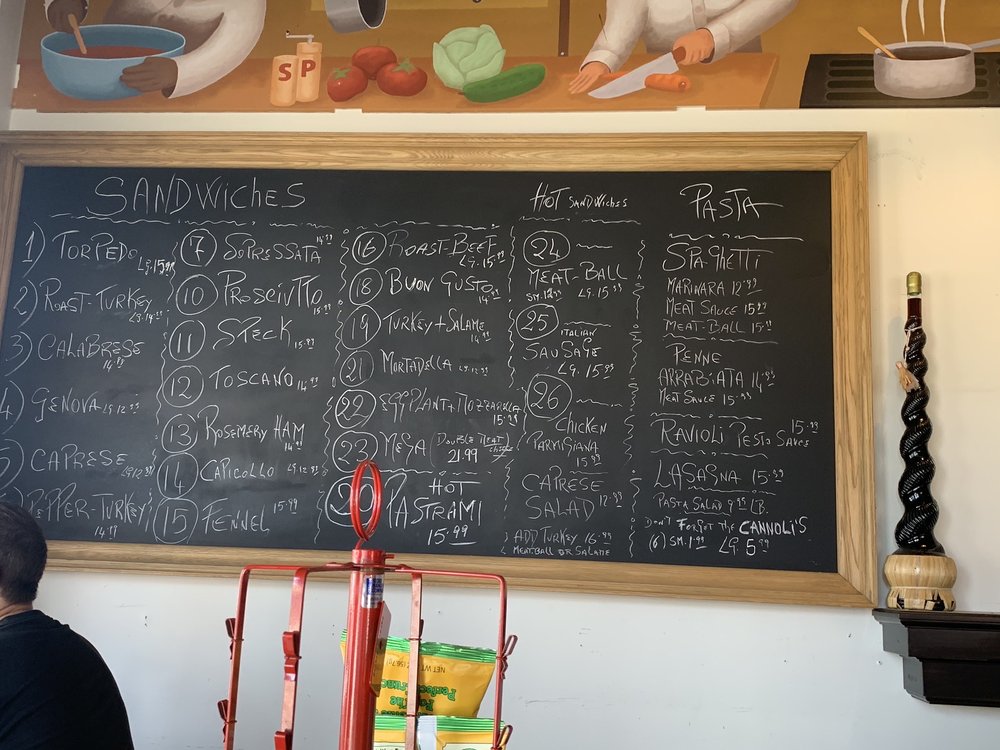 S P
SANDWICHES
1) TORPEDO LG. 15.99
2) ROAST-TURKEY LG. 14.99
3) CALABRESE 14.99
4) GENOVA LG 12.99
5) CAPRESE LG 12.99
PEPPER-TURKEY 14.99
7 SOPRESSATA 14.99
10 PROSCIUTTO 15.99
11 SPECK 15.99
12 TOSCANO 14.99
13 ROSEMERY HAM 14.99
14 CAPICOLLO LG 12.99
15 FENNEL 15.99
16 ROAST-BEEF LG. 15.99
18 BUON GUSTO 14.99
19 TURKEY + SALAME 14.99
21 MORTADELLA LG 12.99
22 EGGPLANT + MOZZARELLA 15.99
23 MEGA (DOUBLE MEAT 21.99
20 HOT
PASTRAMI
15.99
HOT SANDWICHES
24
MEAT-BALL
SM. 12.99 LG. 15.99
25 ITALIAN
SAUSAGE
LG. 15.99
26
CHICKEN
PARMIGIANA
15.99
CAPRESE
SALAD 12.99
ADD TURKEY 16.99
MEATBALL OR SALAME
PASTA
SPAGHETTI
MARINARA 12.99
MEAT SAUCE 15.99
MEAT-BALL 15.99
PENNE
ARRABIATA 14.99
MEAT SAUCE 15.99
RAVIOLI PESTO SAUCE 15.99
LASAGNA 15.99
PASTA SALAD 9.99 LB.
DON'T FORGOT THE CANNOLI'S
(6) SM. 1.99 LG. 5.99
NET WT